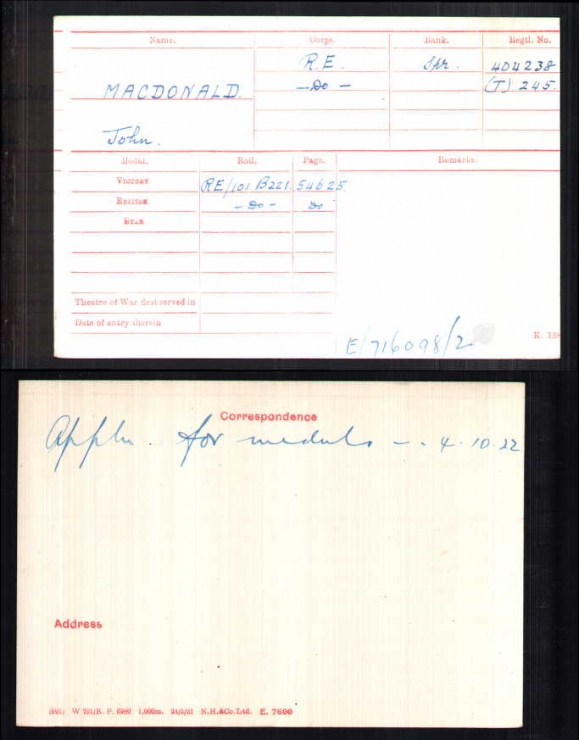 Name. Corps. Rank. Regtl. No.
R.E. Spr. 404238
MACDONALD. —Do— (T) 245.
John.
Medal. Roll. Page. Remarks.
VICTORY RE/101 B221. 54625.
BRITISH —Do— Do
STAR
Theatre of War first served in
Date of entry therein
K. 13
E/716098/2
Correspondence
Appln. for medals —. 4.10.22
Address
W 791/R. P. 1,000m. N.H.&Co.Ltd. E. 7600